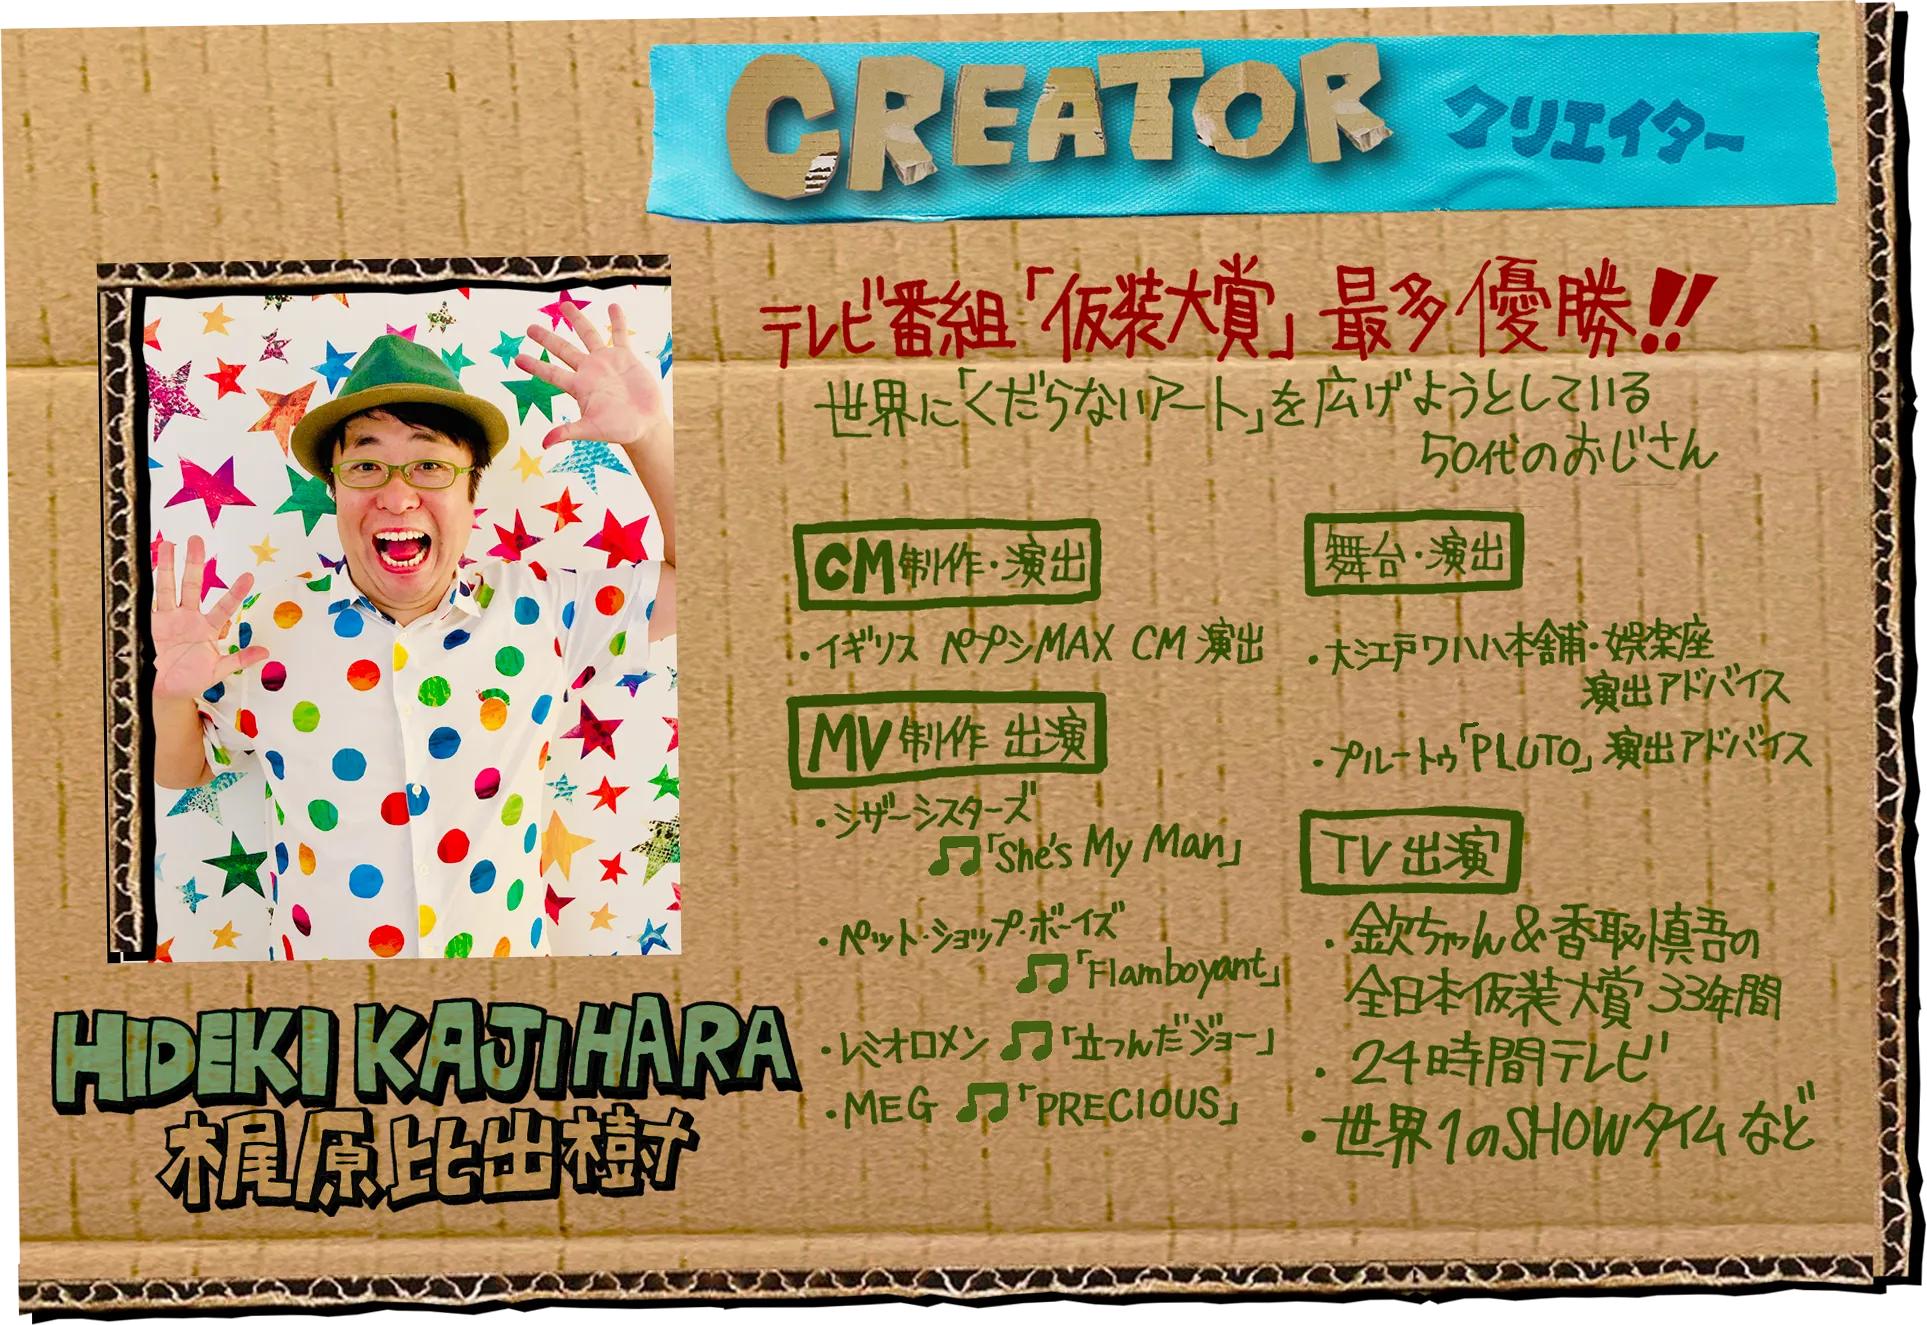 CREATOR クリエイター
テレビ番組「仮装大賞」最多優勝!!
世界に「くだらないアート」を広げようとしている
50代のおじさん
CM制作・演出
・イギリス ペプシMAX CM 演出
MV制作 出演
・シザーシスターズ
♫「She's My Man」
・ペット・ショップ・ボーイズ
♫「Flamboyant」
・レミオロメン ♫「立つんだジョー」
・MEG ♫「PRECIOUS」
舞台・演出
・大江戸ワハハ本舗・娯楽座
演出アドバイス
・プルートゥ「PLUTO」演出アドバイス
TV出演
・欽ちゃん&香取慎吾の
全日本仮装大賞 33年間
・24時間テレビ
・世界1のSHOWタイムなど
HIDEKI KAJIHARA
梶原比出樹